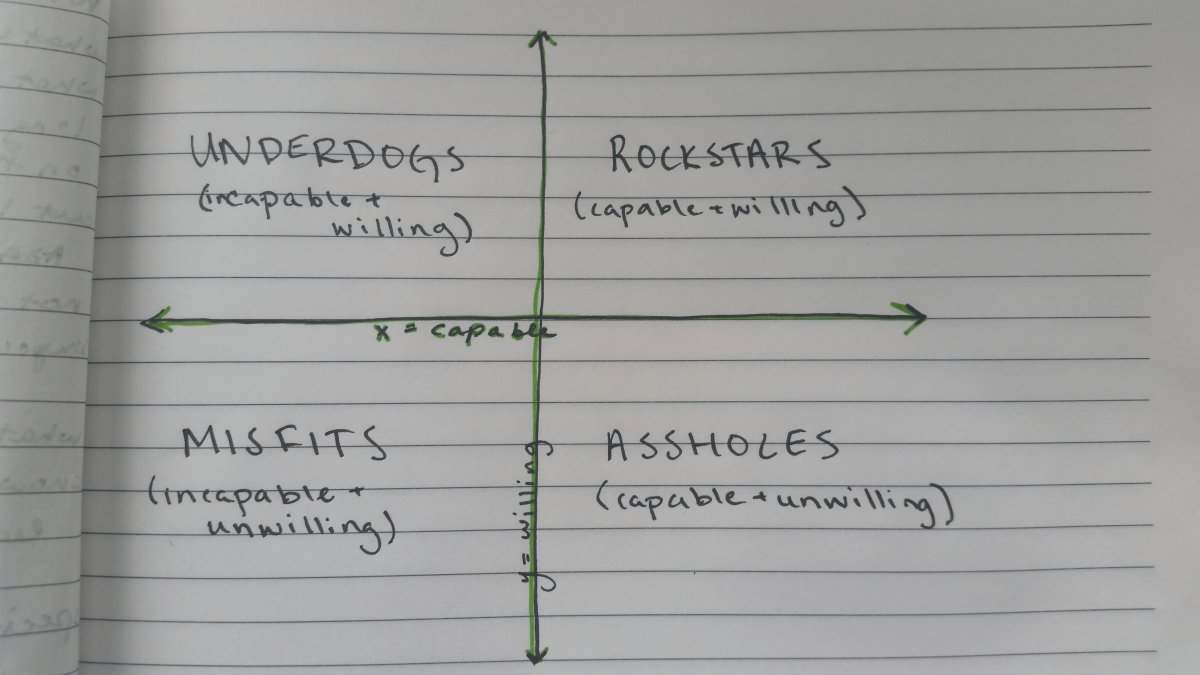 UNDERDOGS
(incapable +
willing)
ROCKSTARS
(capable + willing)
x = capable
MISFITS
(incapable +
unwilling)
y = willing
ASSHOLES
(capable + unwilling)